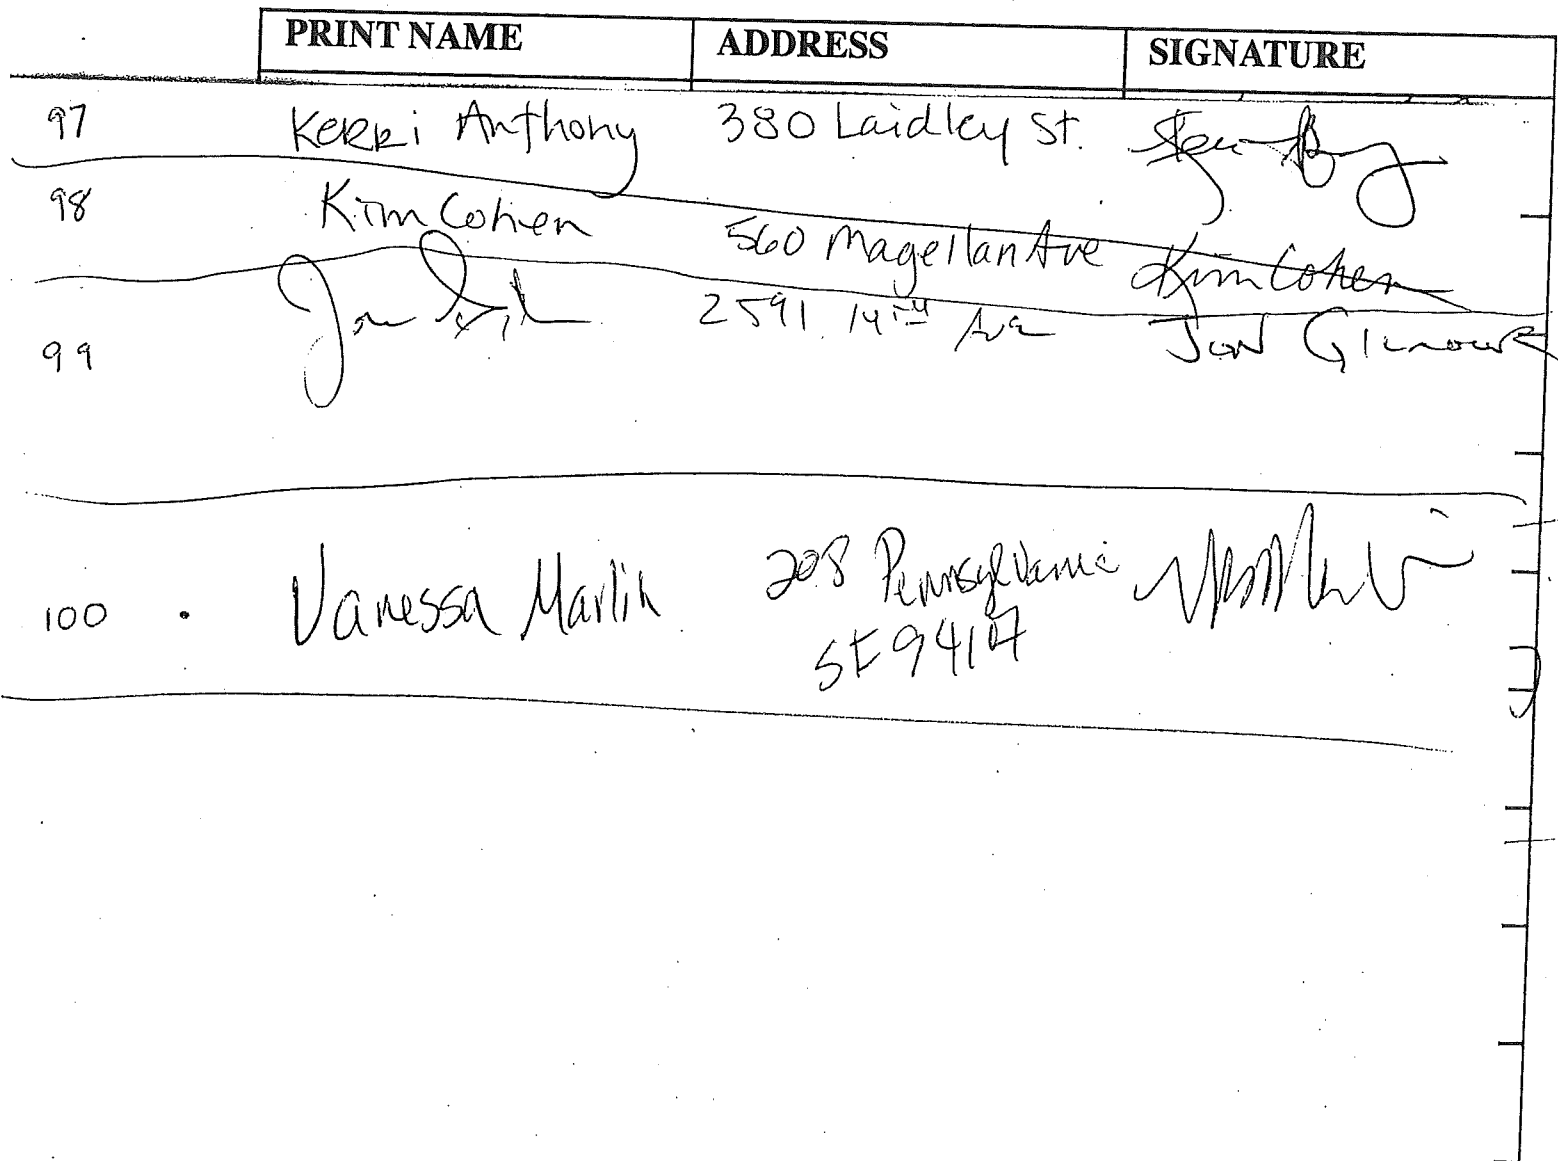 PRINT NAME ADDRESS SIGNATURE
97 Kerri Anthony 380 Laidley St.
98 Kim Cohen 560 Magellan Ave Kim Cohen
99 2591 14TH Ave Jon Gilmour
100 Vanessa Marlin 208 Pennsylvania
SF 94107